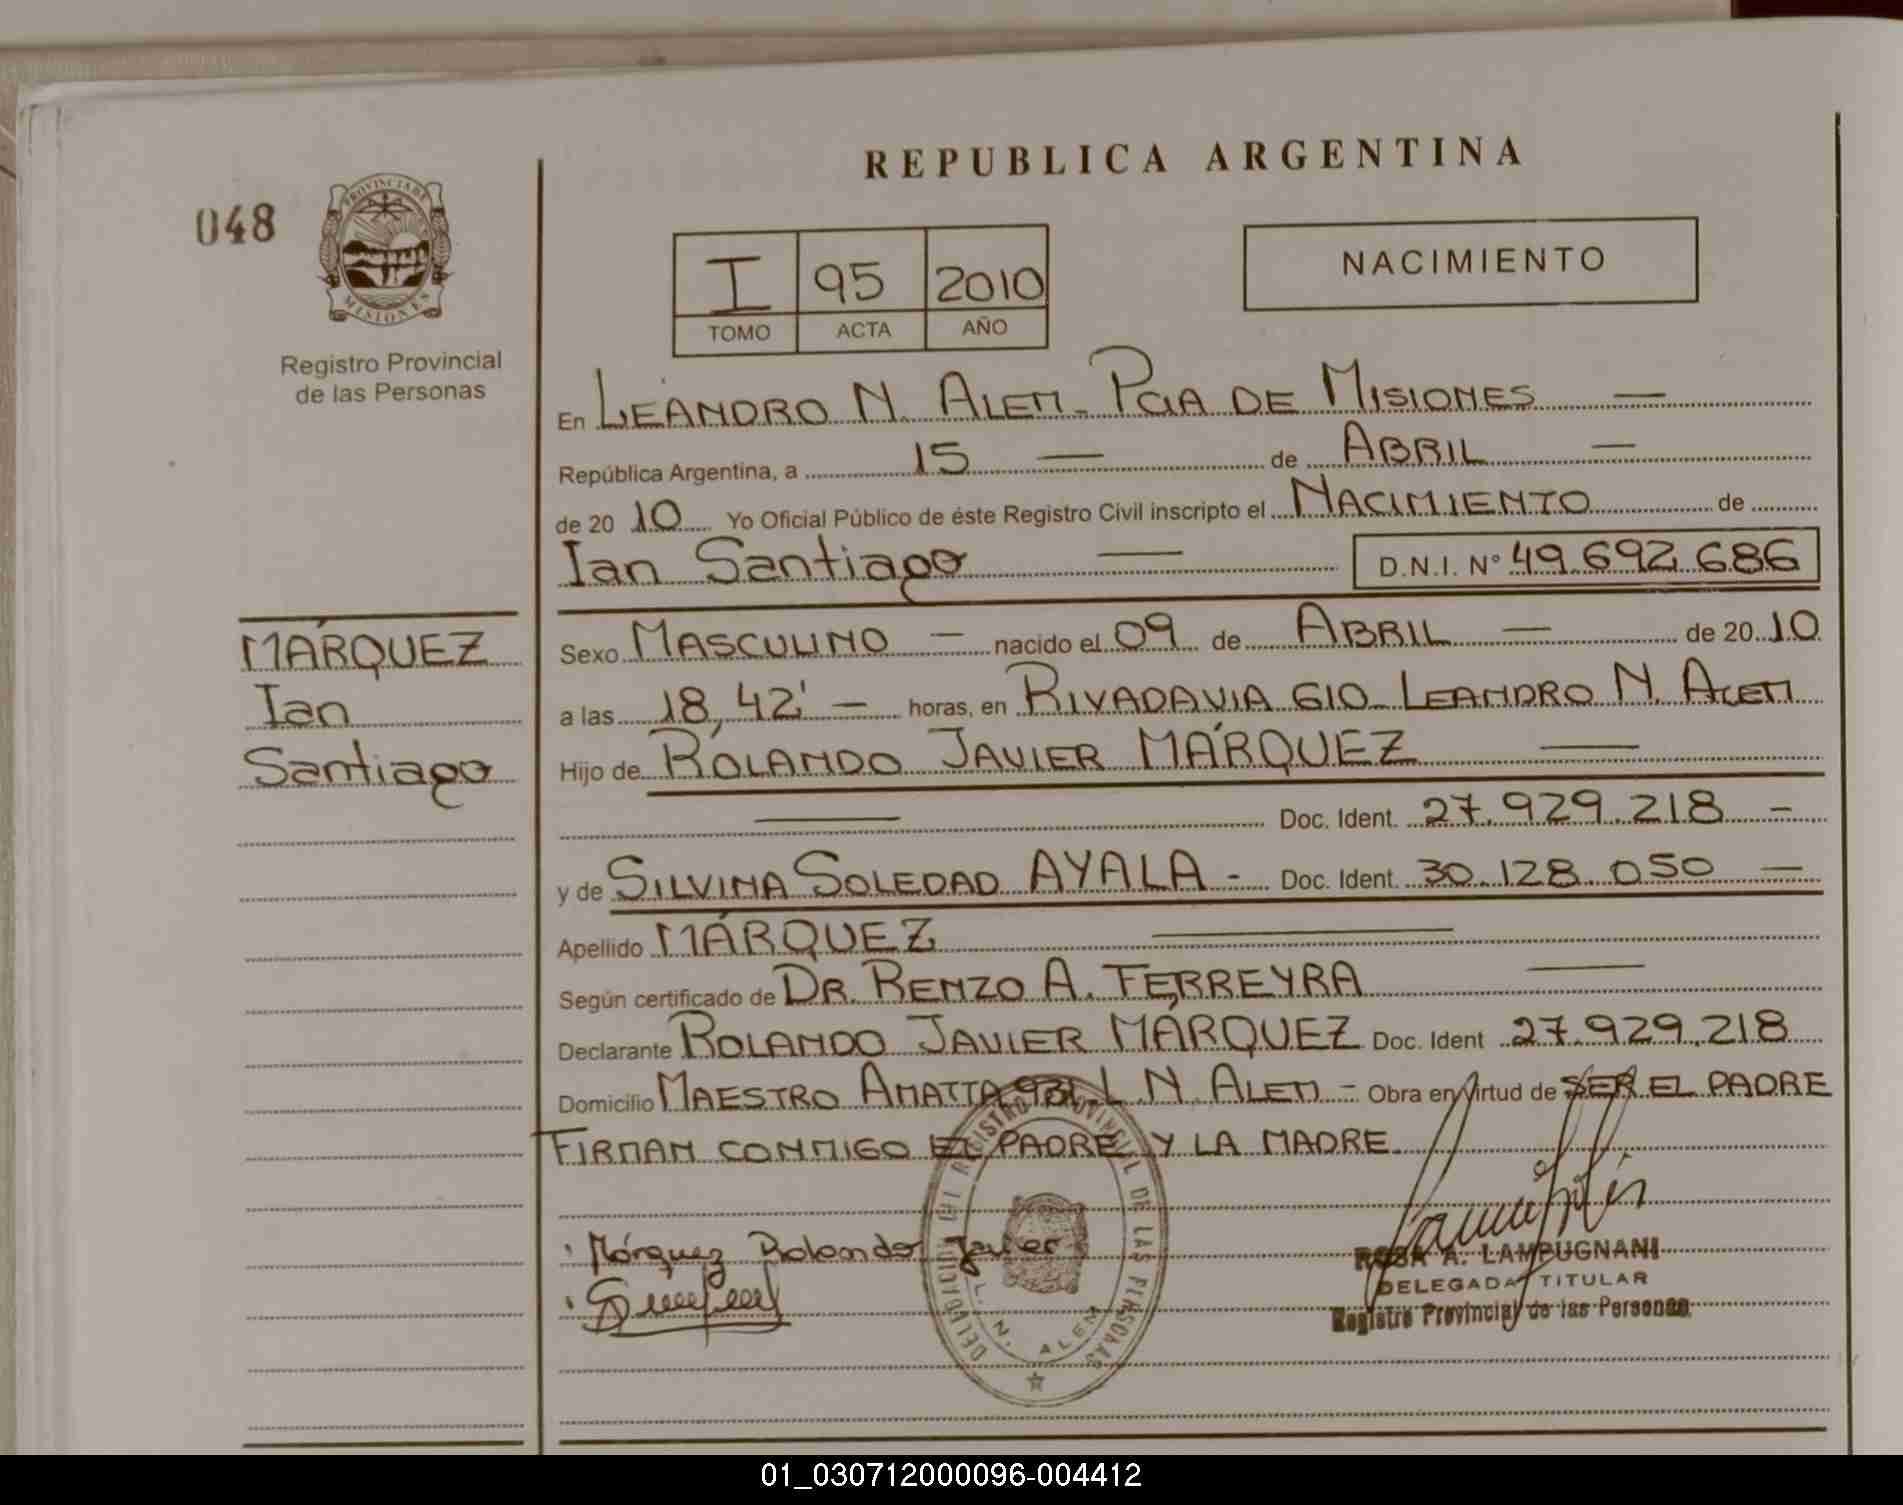 REPUBLICA ARGENTINA
048
PROVINCIA DE
MISIONES
Registro Provincial
de las Personas
I 95 2010
TOMO ACTA AÑO
NACIMIENTO
En LEANDRO N. ALEM - PCIA DE MISIONES —
República Argentina, a 15 — de ABRIL —
de 20 10 Yo Oficial Público de éste Registro Civil inscripto el NACIMIENTO de
Ian Santiago — D.N.I. N° 49.692.686
MÁRQUEZ
Ian
Santiago
Sexo MASCULINO — nacido el 09 de ABRIL — de 20 10
a las 18,42' — horas, en RIVADAVIA 610 - LEANDRO N. ALEM
Hijo de ROLANDO JAVIER MÁRQUEZ —
— Doc. Ident. 27.929.218 —
y de SILVINA SOLEDAD AYALA - Doc. Ident. 30.128.050 —
Apellido MÁRQUEZ —
Según certificado de DR. RENZO A. FERREYRA —
Declarante ROLANDO JAVIER MÁRQUEZ Doc. Ident 27.929.218
Domicilio MAESTRO AMATTA 931 L.N. ALEM - Obra en virtud de SER EL PADRE
FIRMAN CONMIGO EL PADRE Y LA MADRE.
Márquez Rolando Javier
DELEGACION DEL REGISTRO PROVINCIAL DE LAS PERSONAS
L. N. ALEM
ROSA A. LAMPUGNANI
DELEGADA TITULAR
Registro Provincial de las Personas
01_030712000096-004412